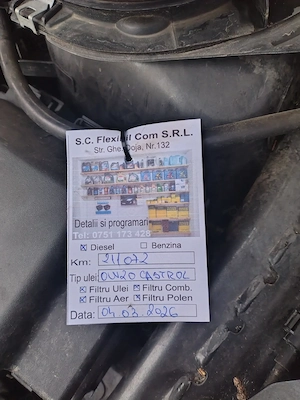 S.C. Flexibil Com S.R.L.
Str. Ghe. Doja, Nr.132
Detalii si programari
Tel: 0751 173 428
☒ Diesel ☐ Benzina
Km: 211072
Tip ulei: 0W20 CASTROL
☒ Filtru Ulei ☒ Filtru Comb.
☒ Filtru Aer ☒ Filtru Polen
Data: 04.03.2026